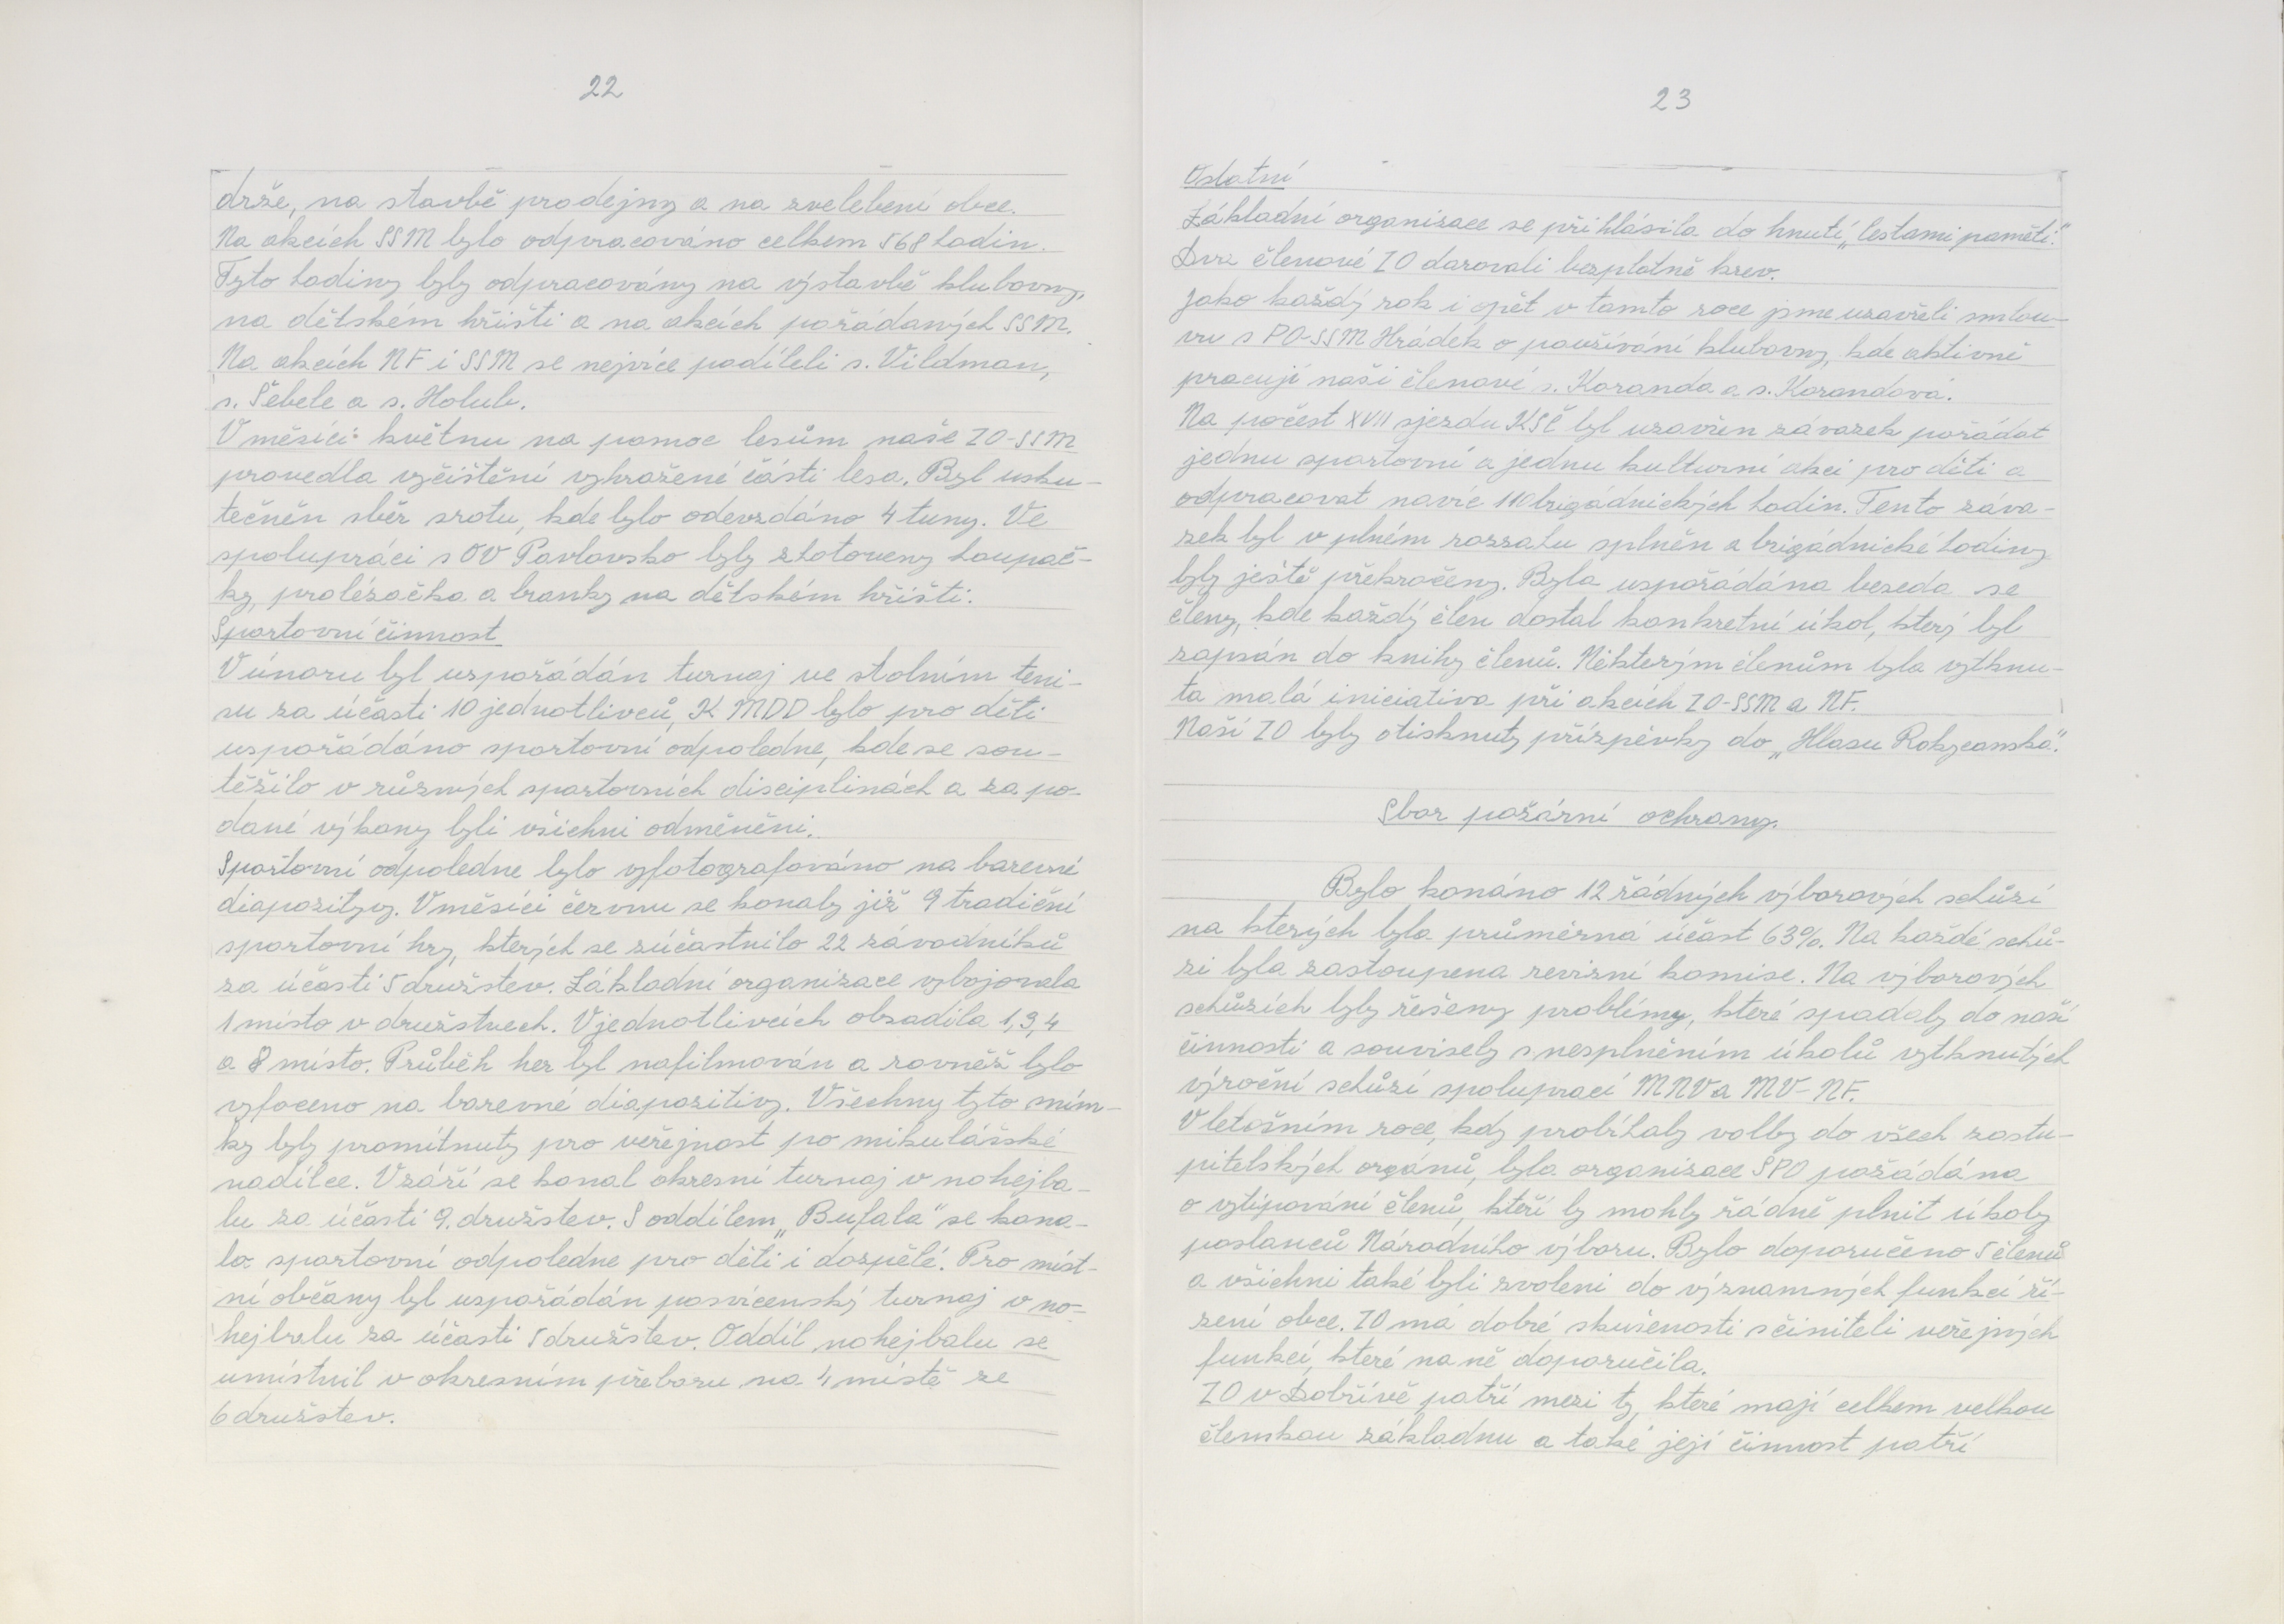 22
drže, na stavbě prodejny a na zvelebení obce.
Na akcích SSM bylo odpracováno celkem 568 hodin.
Tyto hodiny byly odpracovány na výstavbě klubovny,
na dětském hřišti a na akcích pořádaných SSM.
Na akcích NF i SSM se nejvíce podíleli s. Vildman,
s. Šebele a s. Holub.
V měsíci květnu na pomoc lesům naše ZO-SSM
provedla vyčištění vyhražené části lesa. Byl usku-
tečněn sběr srotu, kde bylo odevzdáno 4 tuny. Ve
spolupráci s OV Pavlovsko byly zhotoveny houpač-
ky, prolézačka a branky na dětském hřišti.
Sportovní činnost
V únoru byl uspořádán turnaj ve stolním teni-
su za účasti 10 jednotlivců, K MDD bylo pro děti
uspořádáno sportovní odpoledne, kde se sou-
těžilo v různých sportovních disciplinách a za po-
dané výkony byli všichni odměněni.
Sportovní odpoledne bylo vyfotografováno na barevné
diapozityvy. V měsíci červnu se konaly již 9 tradiční
sportovní hry, kterých se zúčastnilo 22 závodníků
za účasti 5 družstev. Základní organizace vybojovala
1 místo v družstvech. V jednotlivcích obsadila 1, 3, 4
a 8 místo. Průběh her byl nafilmován a rovněž bylo
vyfoceno na barevné diapozitivy. Všechny tyto sním-
ky byly promítnuty pro veřejnost po mikulášské
nadílce. V září se konal okresní turnaj v nohejba-
lu za účasti 9. družstev. S oddílem „Bufala" se kona-
lo sportovní odpoledne pro děti i dospělé. Pro míst-
ní občany byl uspořádán posvícenský turnaj v no-
hejbalu za účasti 5 družstev. Oddíl nohejbalu se
umístnil v okresním přeboru na 4 místě ze
6 družstev.
23
Ostatní
Základní organizace se přihlásila do hnutí „Cestami paměti."
Dva členové ZO darovali bezplatně krev.
Jako každý rok i opět v tamto roce jsme uzavřeli smlou-
vu s PO-SSM Hrádek o používání klubovny, kde aktivně
pracují naši členové s. Koranda a s. Korandová.
Na počest XVII sjezdu KSČ byl uzavřen závazek pořádat
jednu sportovní a jednu kulturní akci pro děti a
odpracovat navíc brigádnických hodin. Tento záva-
zek byl v plném rozsahu splněn a brigádnické hodiny
byly ještě překročeny. Byla uspořádána beseda se
členy, kde každý člen dostal konkretní úkol, který byl
zapsán do knihy členů. Některým členům byla vytknu-
ta malá iniciativa při akcích ZO-SSM a NF.
Naší ZO byly otisknuty příspěvky do „Hlasu Rokycanska".
Sbor požární ochrany.
Bylo konáno 12 řádných výborových schůzí
na kterých byla průměrná účast 63%. Na každé schů-
zi byla zastoupena revizní komise. Na výborových
schůzích byly řešeny problémy, které spadaly do naší
činnosti a souvisely s nesplněním úkolů vytknutých
výroční schůzí spoluprací MNV a MV-NF.
V letošním roce, kdy probíhaly volby do všech zastu-
pitelských orgánů, byla organizace SPO požádána
o vytipování členů, kteří by mohly řádně plnit úkoly
poslanců Národního výboru. Bylo doporučeno 5 členů
a všichni také byli zvoleni do významných funkcí ří-
zení obce. ZO má dobré skušenosti s činiteli veřejných
funkcí, které na ně doporučila.
ZO v Dobřívě patří mezi ty, které mají celkem velkou
členskou základnu a také její činnost patří